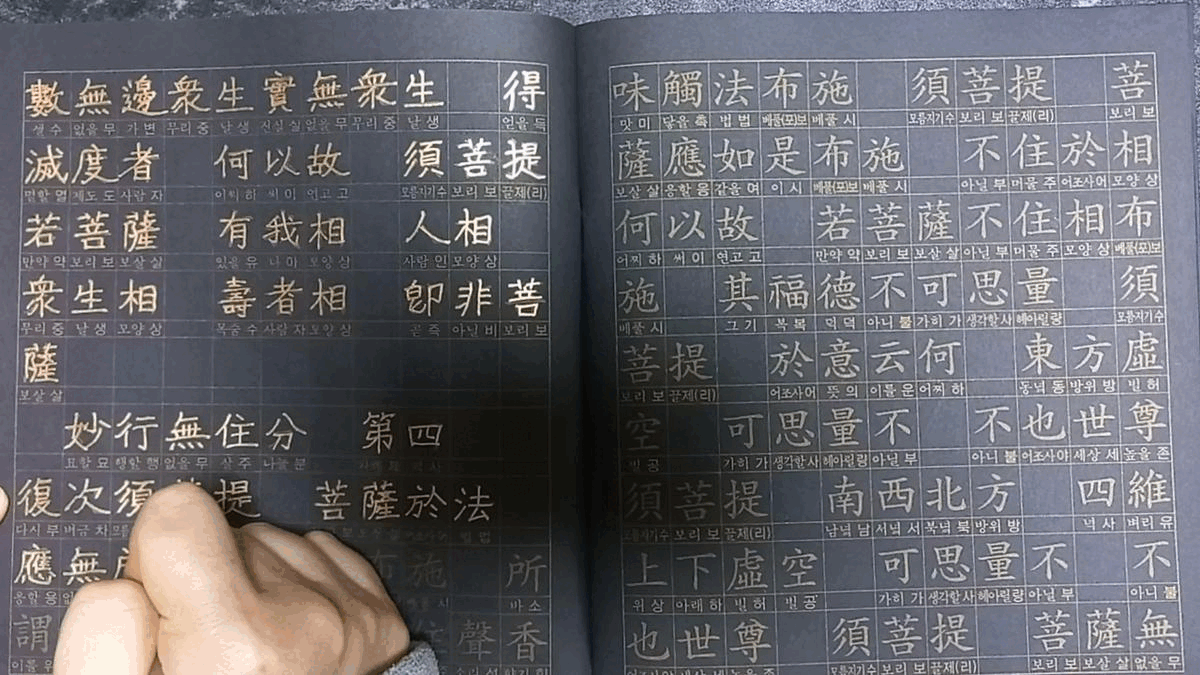 數無邊衆生實無衆生 得
셀 수 없을 무 가 변 무리 중 날 생 진실 실 없을 무 무리 중 날 생 얻을 득
滅度者 何以故 須菩提
멸할 멸 제도 도 사람 자 어찌 하 써 이 연고 고 모름지기 수 보리 보 끌제(리)
若菩薩 有我相 人相
만약 약 보리 보 보살 살 있을 유 나 아 모양 상 사람 인 모양 상
衆生相 壽者相 卽非菩
무리 중 날 생 모양 상 목숨 수 사람 자 모양 상 곧 즉 아닐 비 보리 보
薩
보살 살
妙行無住分 第四
묘할 묘 행할 행 없을 무 살 주 나눌 분
復次須 提 菩薩於法
다시 부 버금 차
應無 施 所
응할 응 바 소
謂 聲香
味觸法布施 須菩提 菩
맛 미 닿을 촉 법 법 베풀(포)보 베풀 시 모름지기 수 보리 보 끌제(리) 보리 보
薩應如是布施 不住於相
보살 살 응할 응 같을 여 이 시 베풀(포)보 베풀 시 아닐 부 머물 주 어조사 어 모양 상
何以故 若菩薩不住相布
어찌 하 써 이 연고 고 만약 약 보리 보 보살 살 아닌 부 머물 주 모양 상 베풀(포)보
施 其福德不可思量 須
베풀 시 그 기 복 복 덕 덕 아니 불 가히 가 생각할 사 헤아릴 량 모름지기 수
菩提 於意云何 東方虛
보리 보 끌제(리) 어조사 어 뜻 의 이를 운 어찌 하 동녘 동 방위 방 빌 허
空 可思量不 不也世尊
빌 공 가히 가 생각할 사 헤아릴 량 아닐 부 아니 불 어조사 야 세상 세 높을 존
須菩提 南西北方 四維
모름지기 수 보리 보 끌제(리) 남녘 남 서녘 서 북녘 북 방위 방 넉 사 벼리 유
上下虛空 可思量不 不
위 상 아래 하 빌 허 빌 공 가히 가 생각할 사 헤아릴 량 아닐 부 아니 불
也世尊 須菩提 菩薩無
모름지기 수 보리 보 끌제(리) 보리 보 보살 살 없을 무